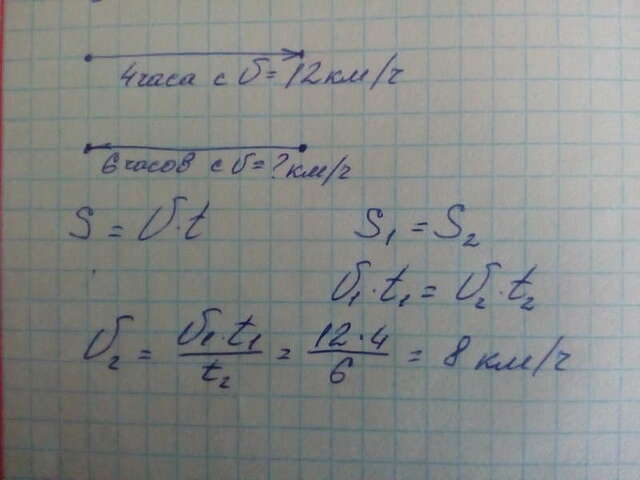 4 часа с υ = 12 км/ч
6 часов с υ = ? км/ч
S = υ · t
S₁ = S₂
υ₁ · t₁ = υ₂ · t₂
υ₂ = υ₁ · t₁ / t₂ = 12 · 4 / 6 = 8 км/ч